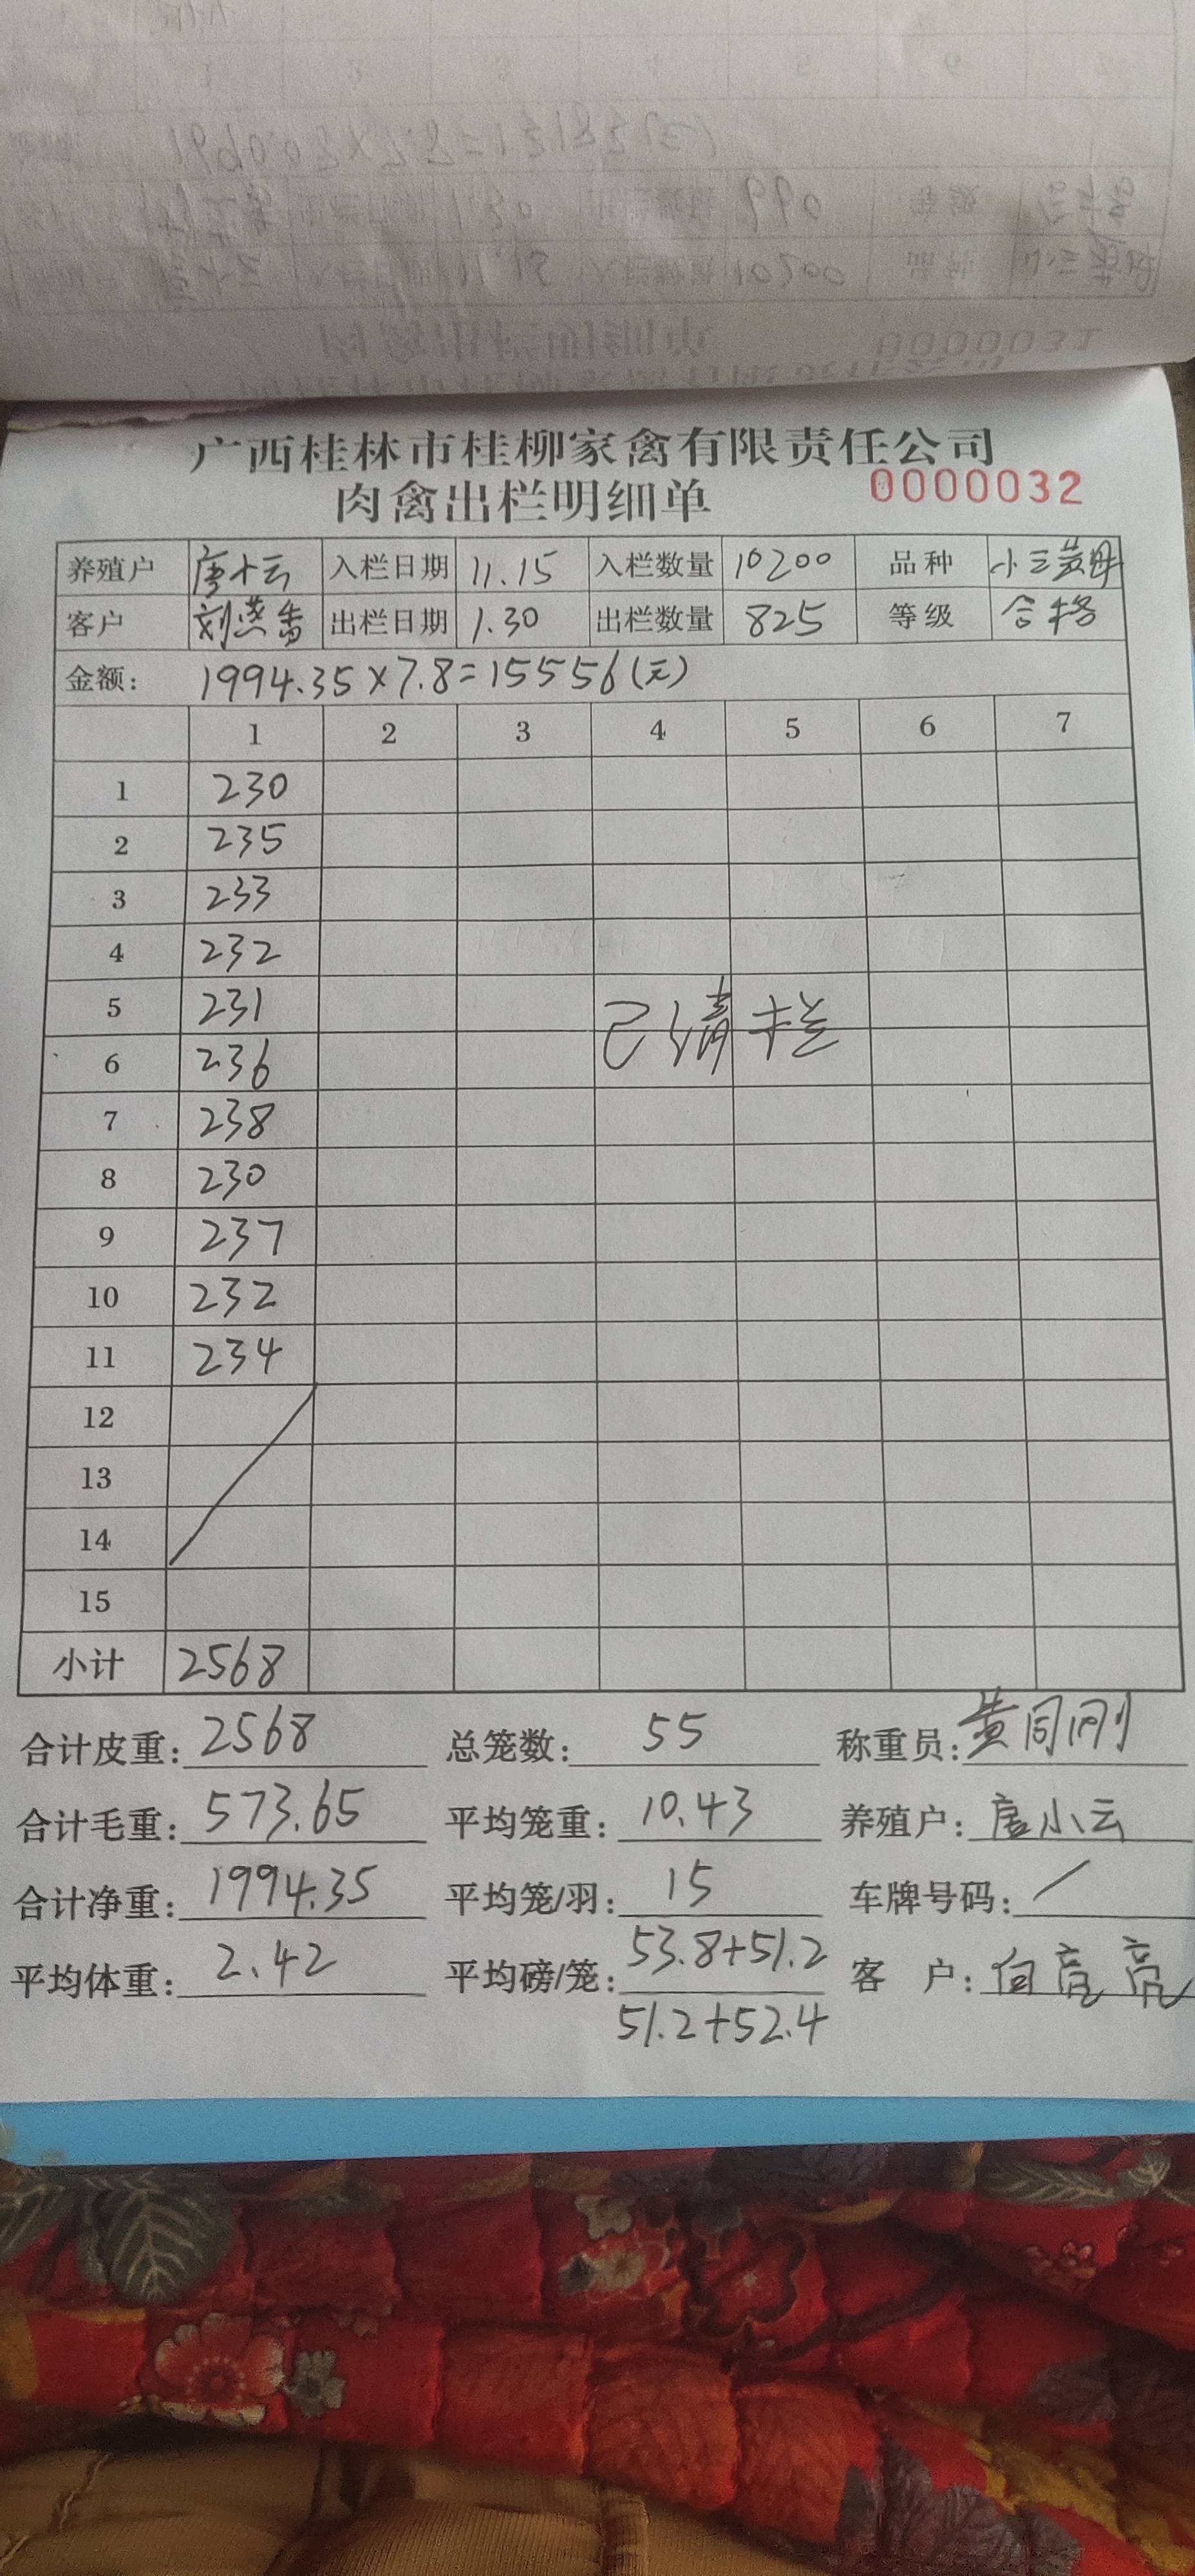 0000031
广西桂林市桂柳家禽有限责任公司
肉禽出栏明细单 0000032
养殖户 唐小云 入栏日期 11.15 入栏数量 10200 品种 小三黄母
客户 刘燕香 出栏日期 1.30 出栏数量 825 等级 合格
金额: 1994.35×7.8=15556(元)
1 2 3 4 5 6 7
1 230
2 235
3 233
4 232
5 231 已清栏
6 236
7 238
8 230
9 237
10 232
11 234
12
13
14
15
小计 2568
合计皮重: 2568 总笼数: 55 称重员: 黄同刚
合计毛重: 573.65 平均笼重: 10.43 养殖户: 唐小云
合计净重: 1994.35 平均笼/羽: 15 车牌号码: /
平均体重: 2.42 平均磅/笼: 53.8+51.2 客户: 向亮亮
51.2+52.4